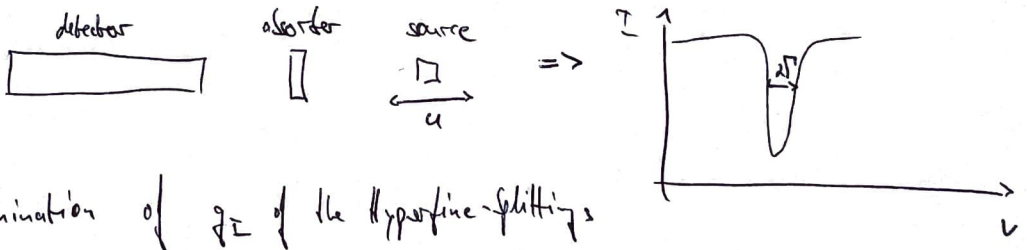 detector absorber source => I
2Γ
u
v
mination of g_I of the Hyperfine-splittings